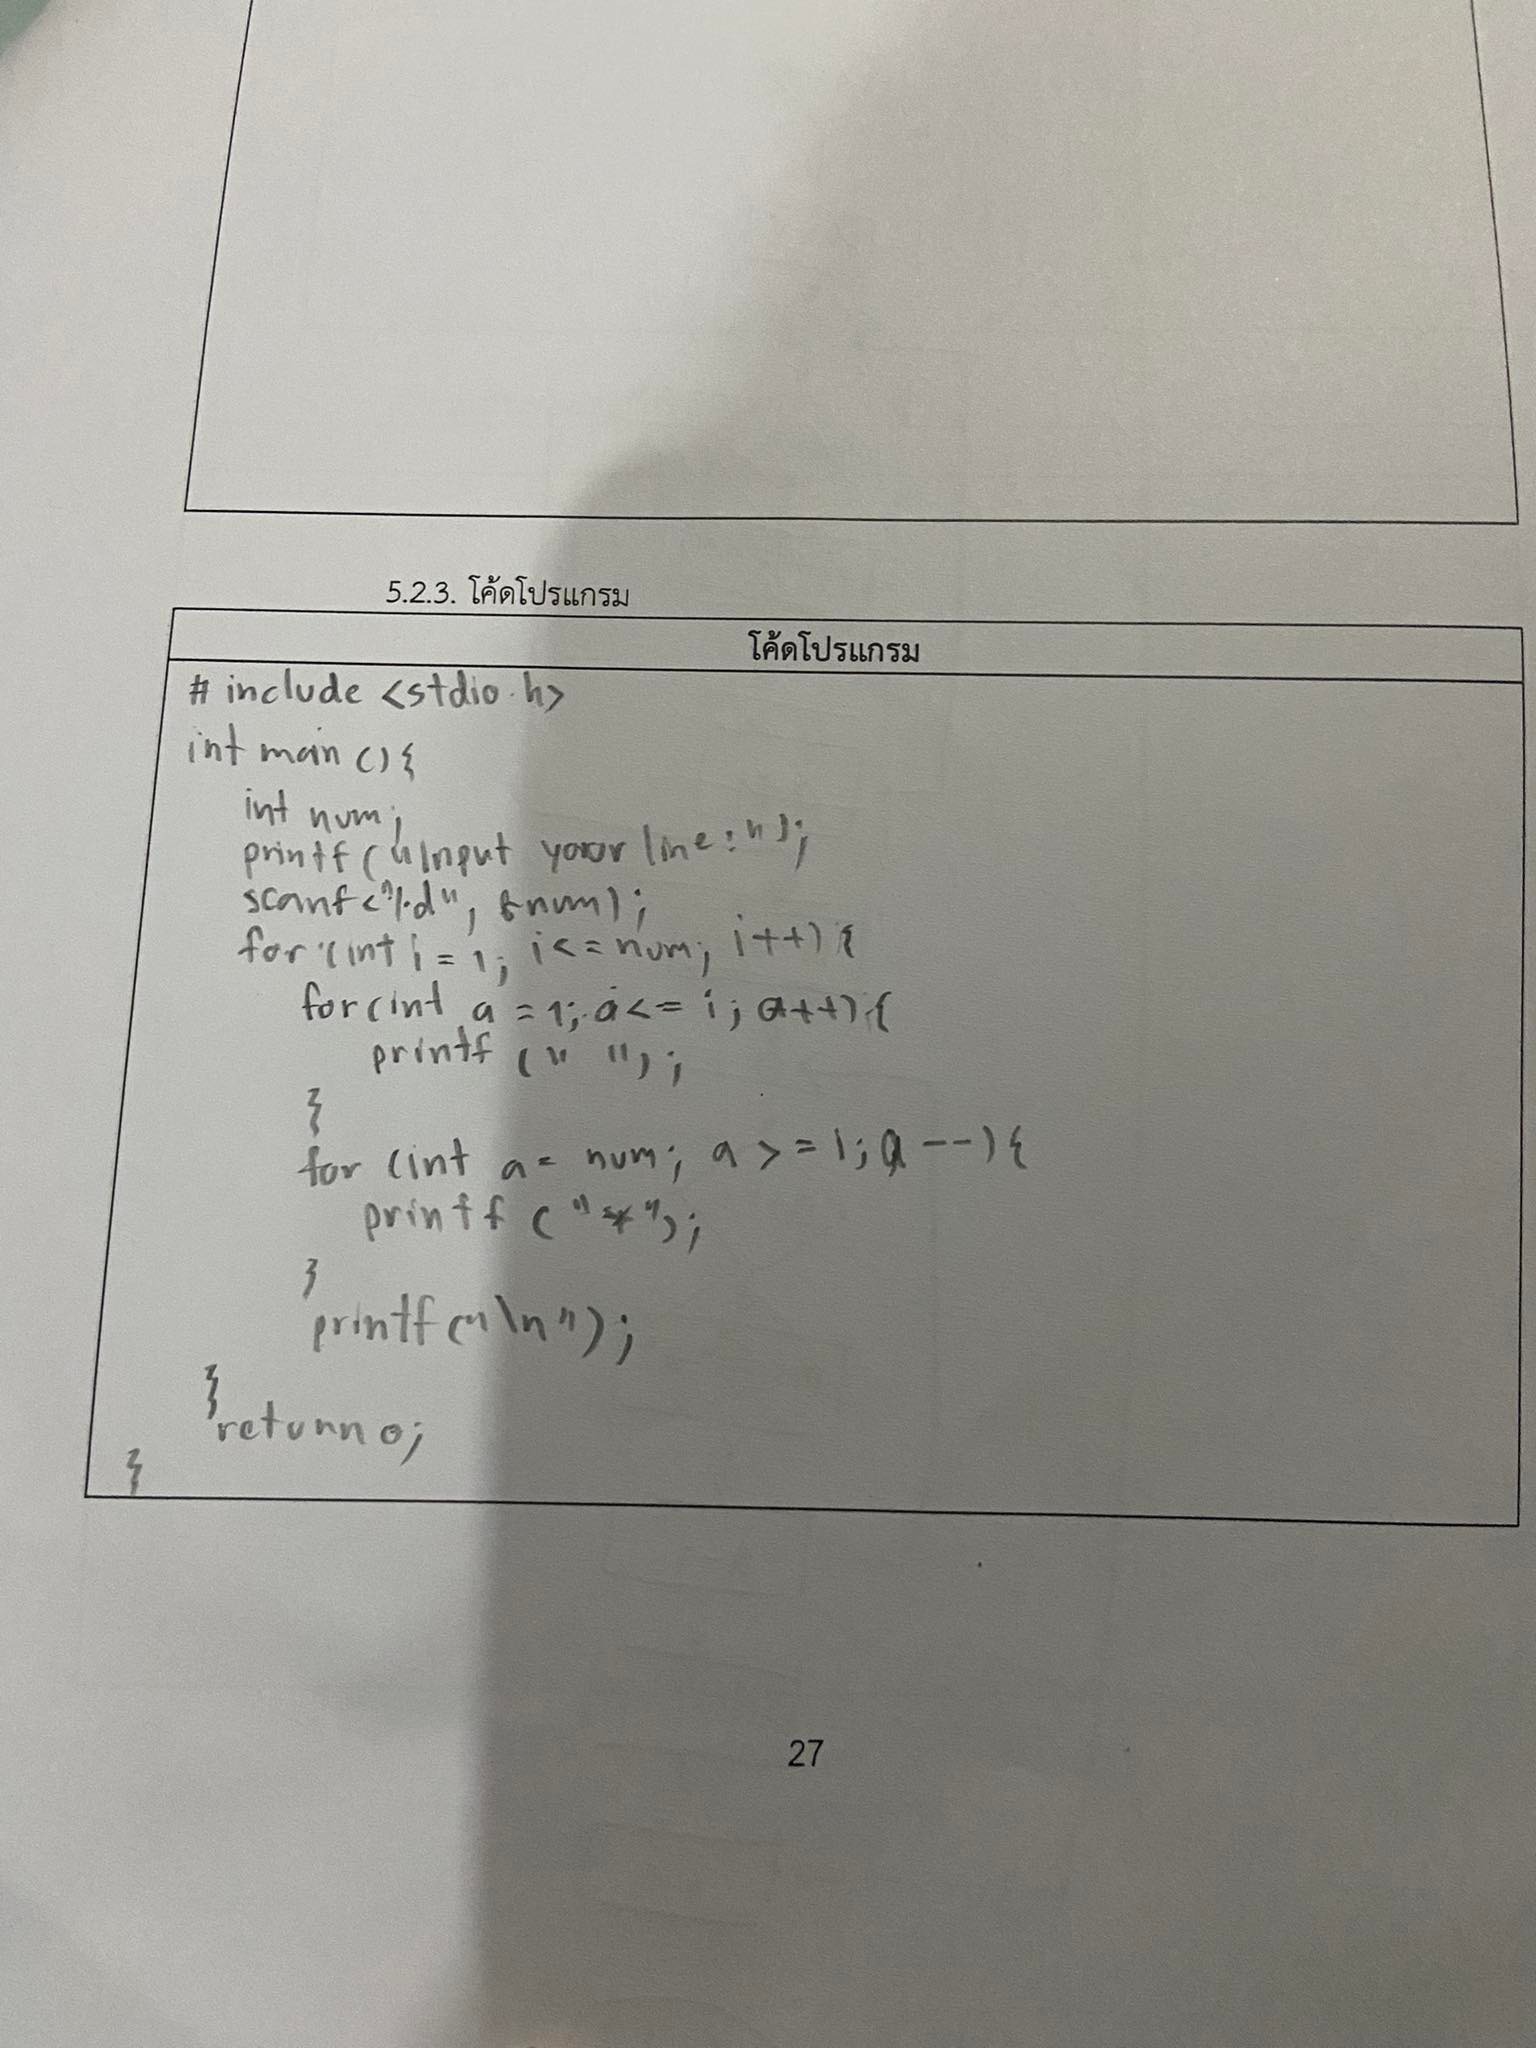 5.2.3. โค้ดโปรแกรม
โค้ดโปรแกรม
# include <stdio.h>
int main () {
int num;
printf ("Input your line : ");
scanf ("%d", &num);
for (int i = 1; i <= num; i++) {
for (int a = 1; a <= i; a++) {
printf (" ");
}
for (int a = num; a >= 1; a --) {
printf ("*");
}
printf ("\n");
}
return 0;
}
27